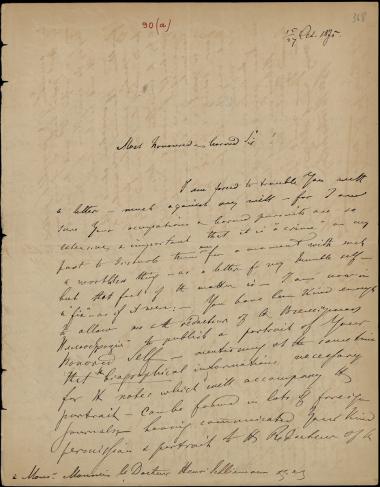 90(a)
368
15/27 Oct. 1875.
Most honoured & learned Sir
I am forced to trouble You with
a letter – much against my will – for I am
sure Your occupations & learned pursuits are so
extensive & important that it is a crime on my
part to disturb them for a moment with such
a worthless thing – as a letter of my humble self –
but the fact of the matter is – I am now in
a "fix" as if were: – You have been kind enough
to allow as the redacteur of the
to publish a portrait of Your
Honored Self – mentioning at the same time
that the biographical informations necessary
for the notes which will accompany the
portrait – can be found in lots of foreign
journals – having communicated Your kind
permission & portrait to the Redacteur of the
à Monsr. Monsieur le Docteur Henri Schliemann